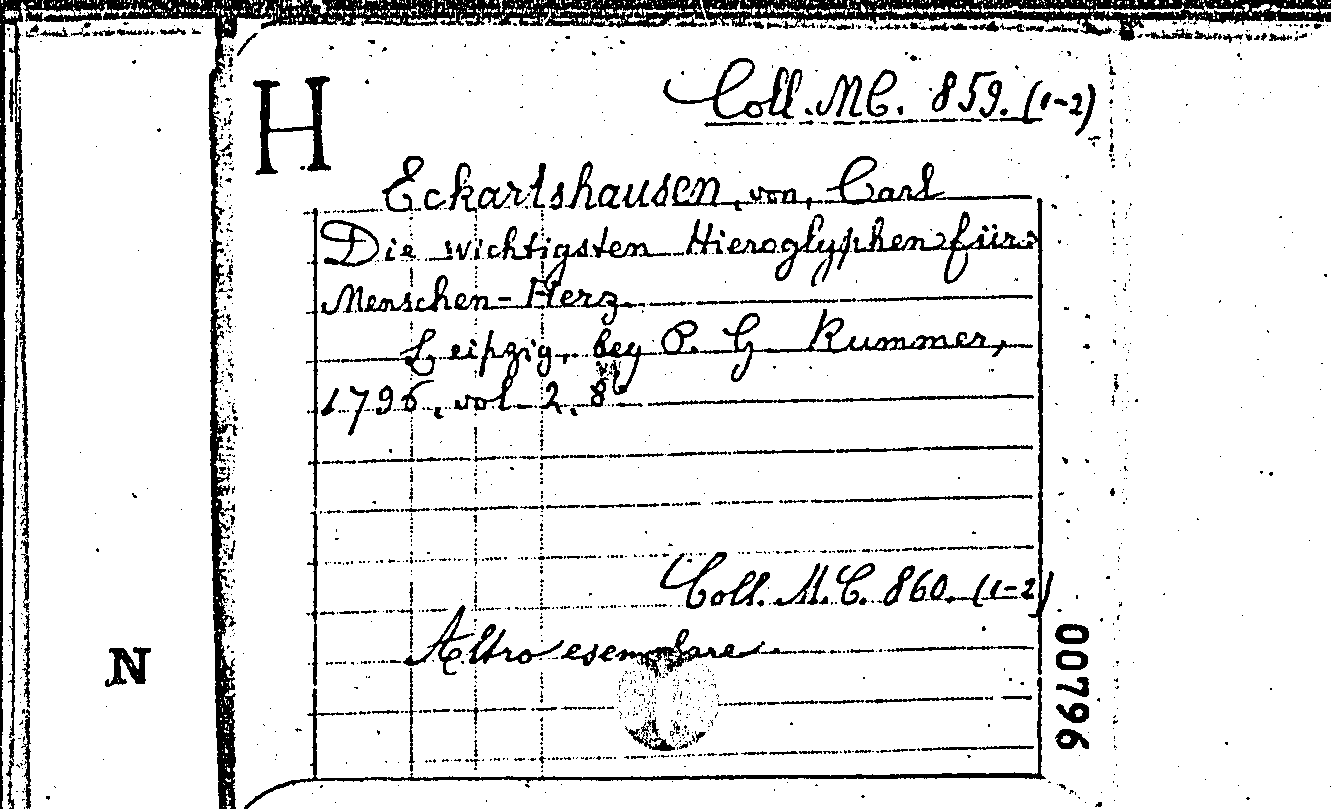 H
Coll. M.C. 859. (1-2)
Eckartshausen, von, Carl
Die wichtigsten Hieroglyphen für
Menschen-Herz
Leipzig, bey P. G. Kummer,
1796, vol. 2. 8°
Coll. M.C. 860. (1-2)
Altro esemplare.
N
00796